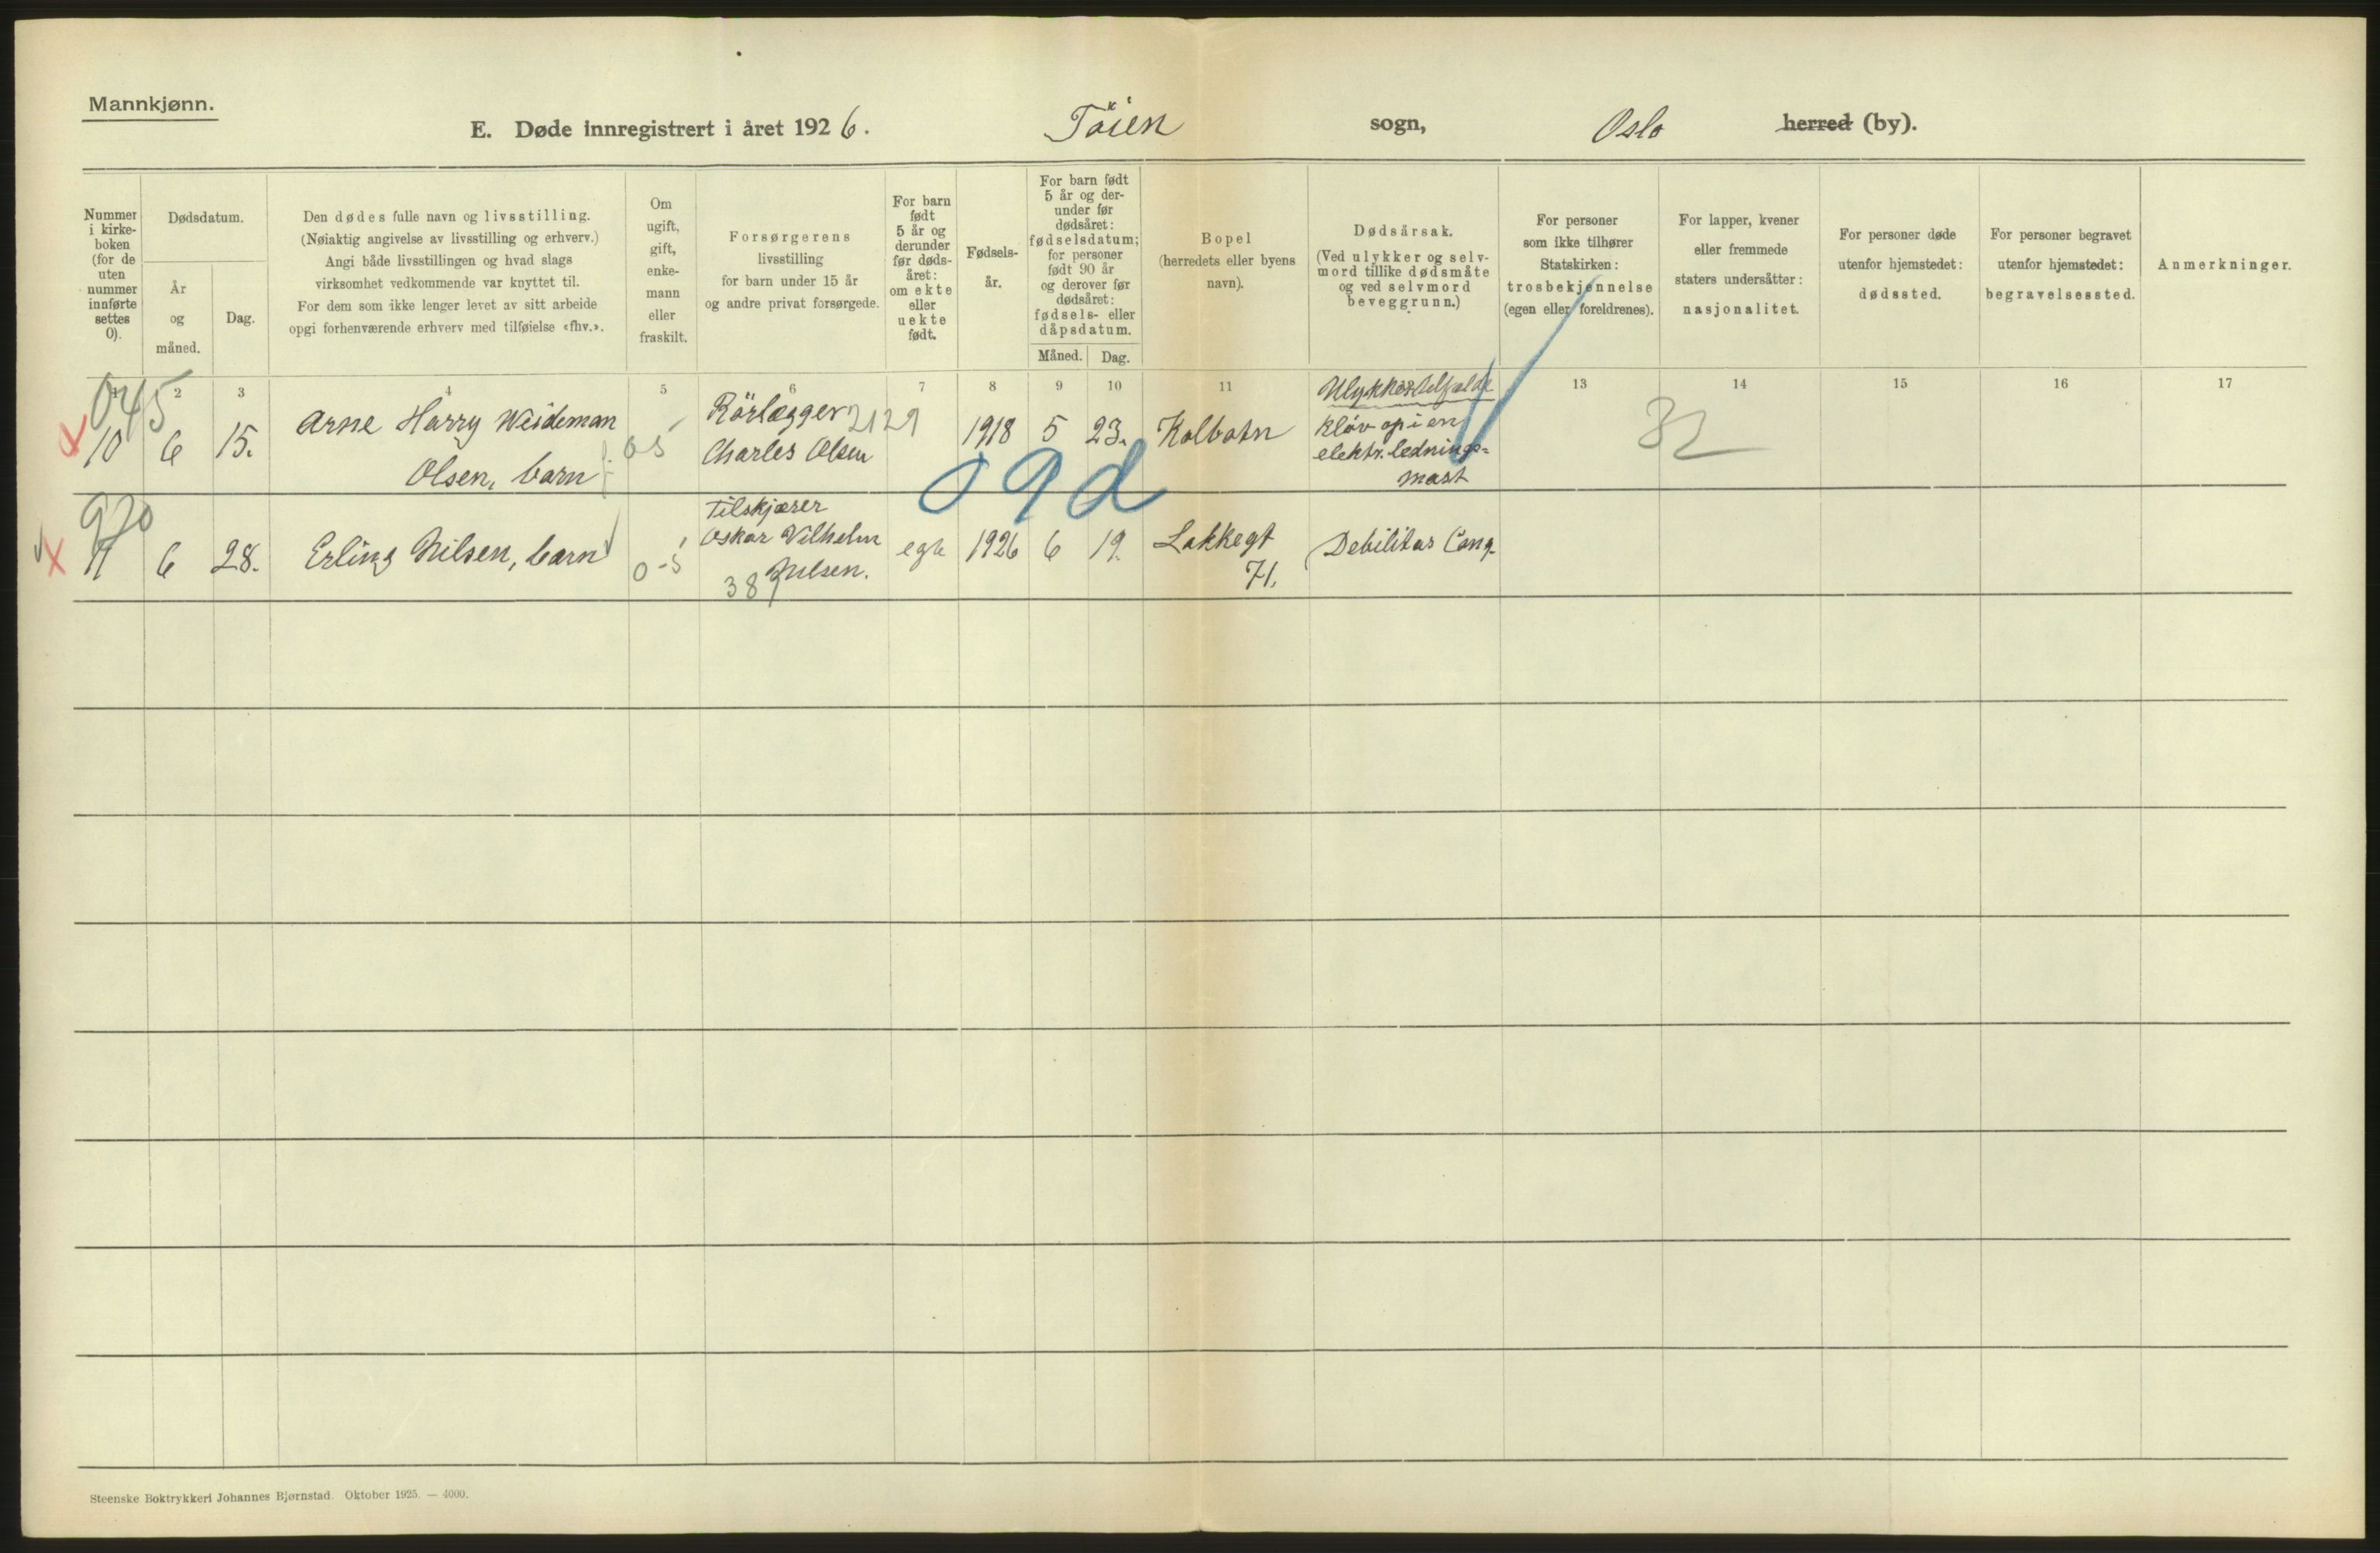 Mannkjønn.
E. Døde innregistrert i året 1926. Töien sogn, Oslo herred (by).
Nummer
i kirke-
boken
(for de
uten
nummer
innførte
settes
0).
Dødsdatum.
År
og
måned.
Dag.
Den dødes fulle navn og livsstilling.
(Nøiaktig angivelse av livsstilling og erhverv.)
Angi både livsstillingen og hvad slags
virksomhet vedkommende var knyttet til.
For dem som ikke lenger levet av sitt arbeide
opgi forhenværende erhverv med tilføielse «fhv.».
Om
ugift,
gift,
enke-
mann
eller
fraskilt.
Forsørgerens
livsstilling
for barn under 15 år
og andre privat forsørgede.
For barn
født
5 år og
derunder
før døds-
året:
om ekte
eller
uekte
født.
Fødsels-
år.
For barn født
5 år og der-
under før
dødsåret:
fødselsdatum;
for personer
født 90 år
og derover før
dødsåret:
fødsels- eller
dåpsdatum.
Måned. Dag.
Bopel
(herredets eller byens
navn).
Dødsårsak.
(Ved ulykker og selv-
mord tillike dødsmåte
og ved selvmord
beveggrunn.)
For personer
som ikke tilhører
Statskirken:
trosbekjennelse
(egen eller foreldrenes).
For lapper, kvener
eller fremmede
staters undersåtter:
nasjonalitet.
For personer døde
utenfor hjemstedet:
dødssted.
For personer begravet
utenfor hjemstedet:
begravelsessted.
Anmerkninger.
2 3 4 5 6 7 8 9 10 11 13 14 15 16 17
045
10 6 15.
Arne Harry Weideman
Olsen, barn
05
Rörlægger 2129
Charles Olsen
1918 5 23. Kolbotn
Ulykkestilfælde
kløv op i en
elektr. lednings-
mast
32
09d
970
11 6 28. Erling Nilsen, barn
0-5
Tilskjærer
Oskar Vilhelm
Nilsen.
387
egte 1926 6 19.
Lakkegt
71.
Debilitas Cong.
Steenske Boktrykkeri Johannes Bjørnstad. Oktober 1925. — 4000.